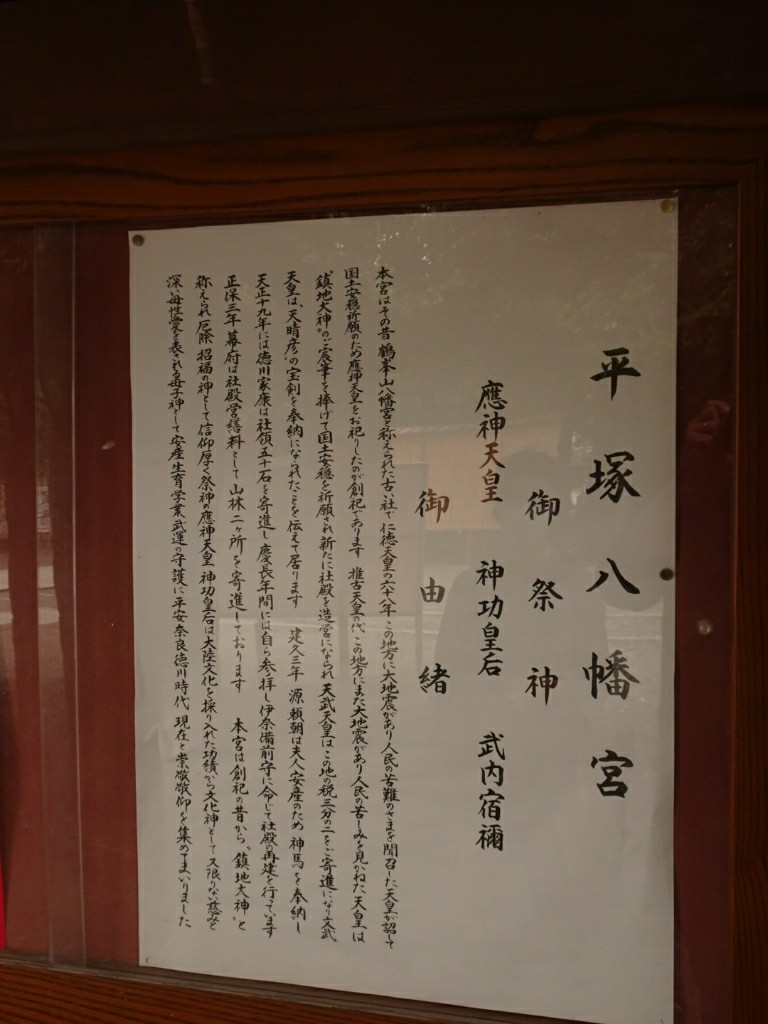 平塚八幡宮
御祭神
應神天皇　神功皇后　武内宿禰
御由緒
本宮はその昔 鶴峯山八幡宮と称えられた古い社で 仁徳天皇の六十八年 この地方に大地震があり人民の苦難のさまを聞召した天皇が詔して
国土安穏祈願のため應神天皇をお祀りしたのが創祀であります 推古天皇の代 この地方にまた大地震があり人民の苦しみを見かねた天皇は
“鎮地大神”のご宸筆を捧げて国土安穏を祈願され 新たに社殿を造営になられ 天武天皇はこの地の税三分の二をご寄進になり 文武
天皇は、“天晴彦”の宝剣を奉納になられたことを伝えて居ります 建久三年 源頼朝は夫人安産のため 神馬を奉納し
天正十九年には徳川家康は社領五十石を寄進し 慶長年間には自ら参拝し伊奈備前守に命じて社殿の再建を行っています
正保三年 幕府は社殿営繕料として 山林二ヶ所を寄進しております 本宮は創祀の昔から、“鎮地大神”と
称えられ 厄除 招福の神として信仰厚く 祭神の應神天皇 神功皇后は大陸文化を採り入れた功績から文化神として 又限りない慈みと
深い母性愛を表される母子神として 安産 生育 学業 武運の守護に平安 奈良 徳川時代 現在と崇敬敬仰を集めてまいりました